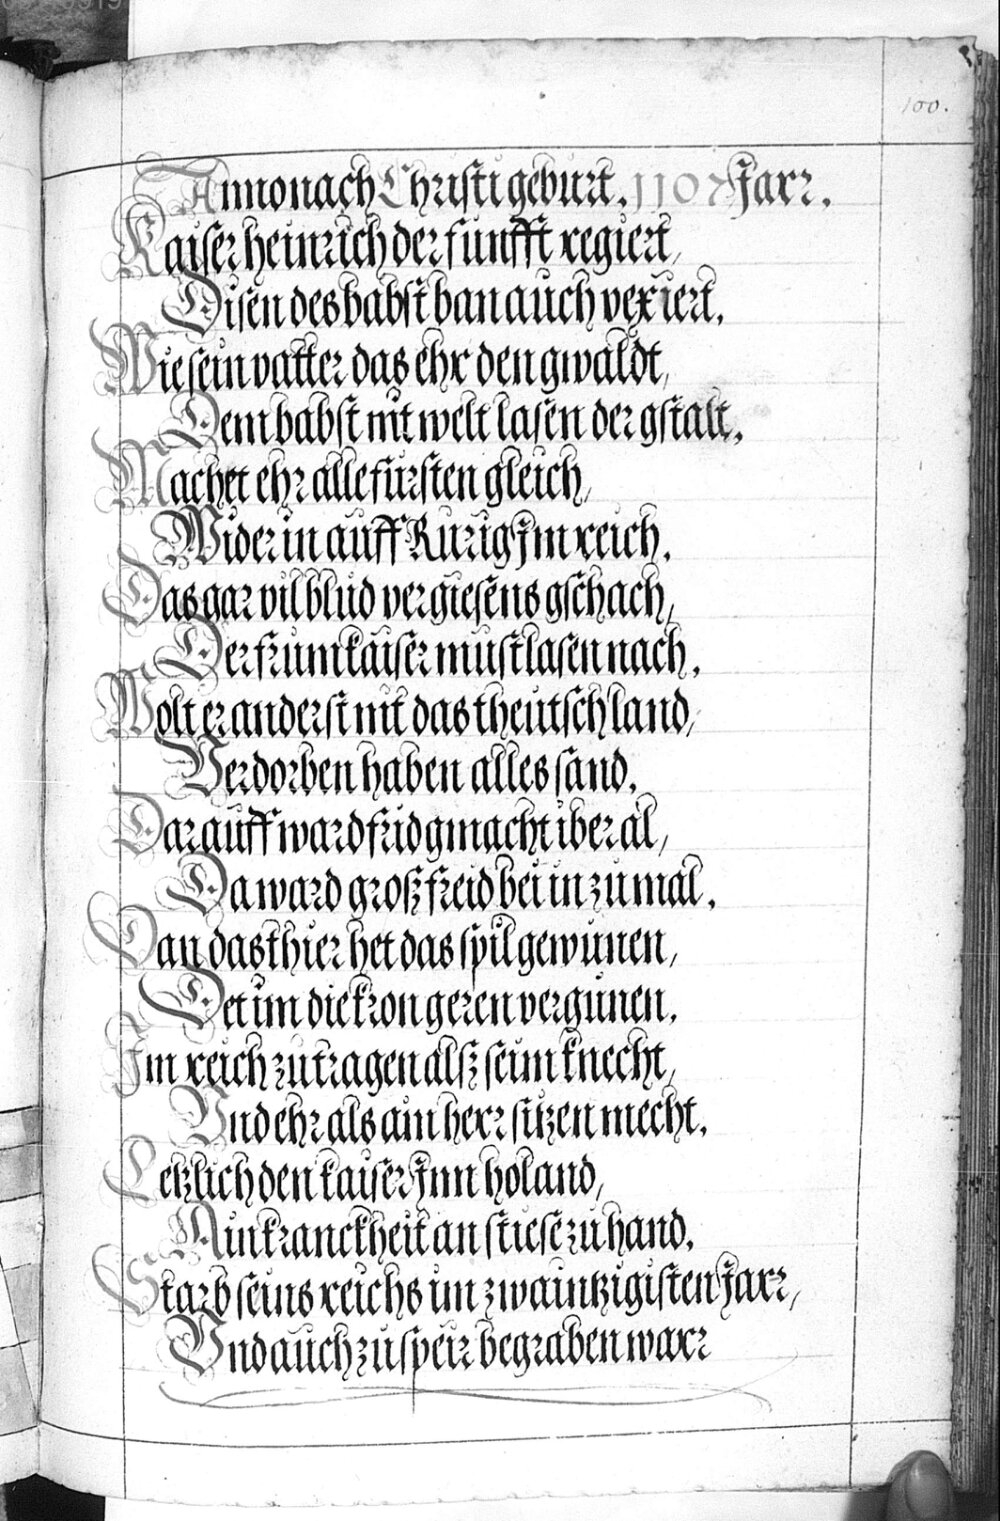 100.
Anno nach Christi geburt. 1107 Jarr.
Kaiser heinrich der funfft regiert,
Disen des babst ban auch vexiert.
Wie sein vatter das ehr den gwaldt,
Dem babst nit welt lasen der gstalt.
Machet ehr alle fürsten gleich,
Wider in auff Rurig Jm reich.
Das gar vil blud vergiesens gschach,
Der frum kaiser must lasen nach.
Wolt er anderst nit das theutsch land,
Verdorben haben alles sand.
Darauff ward frid gmacht iber al,
Da ward groß freid bei in zumal.
Dan das thier het das spil gewunen,
Det im die kron geren vergunen.
Im reich zu tragen alß seim knecht,
Vnd ehr als ain herr sitzen mecht.
Letzlich den kaiser Jnn holand,
Ain kranckheit an stiese zu hand.
Starb seins reichs im zwaintzigisten Jarr,
Vnd auch zu speir begraben warr